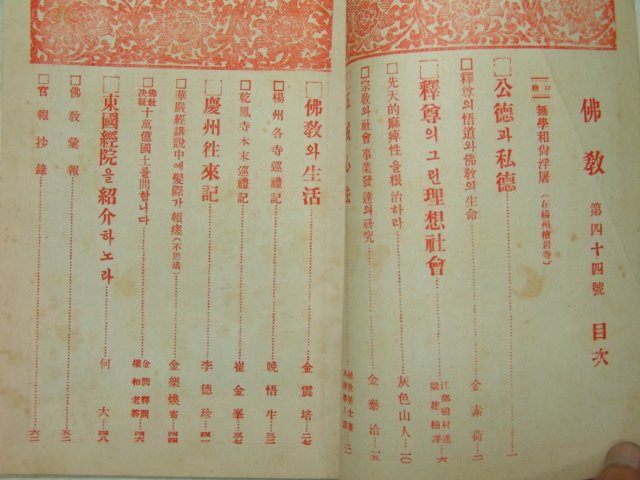 佛敎 第四十四號 目次
口繪 無學和尙浮屠(在楊州檜岩寺)
公德과私德……一
釋尊의悟道와佛敎의生命……金素荷…二
釋尊의그린理想社會……梁建植譯…六
先天的痲痺性을根治하라……灰色山人…一〇
宗敎와社會事業發達의硏究……金泰洽…一五
心法
佛敎와生活……金震培…二七
楊州各寺巡禮記……晩悟生…三三
乾鳳寺本末巡禮記……崔金峯…三七
慶州往來記……李德珍…四一
華嚴經講說中에髮際가頓瘥(不思議)……金樂煥寄…四四
佛敎決疑 十萬億國土를問합니다……權相老答…四六
東國經院을紹介하노라……何大…四八
佛敎彙報……五二
官報抄錄……六二